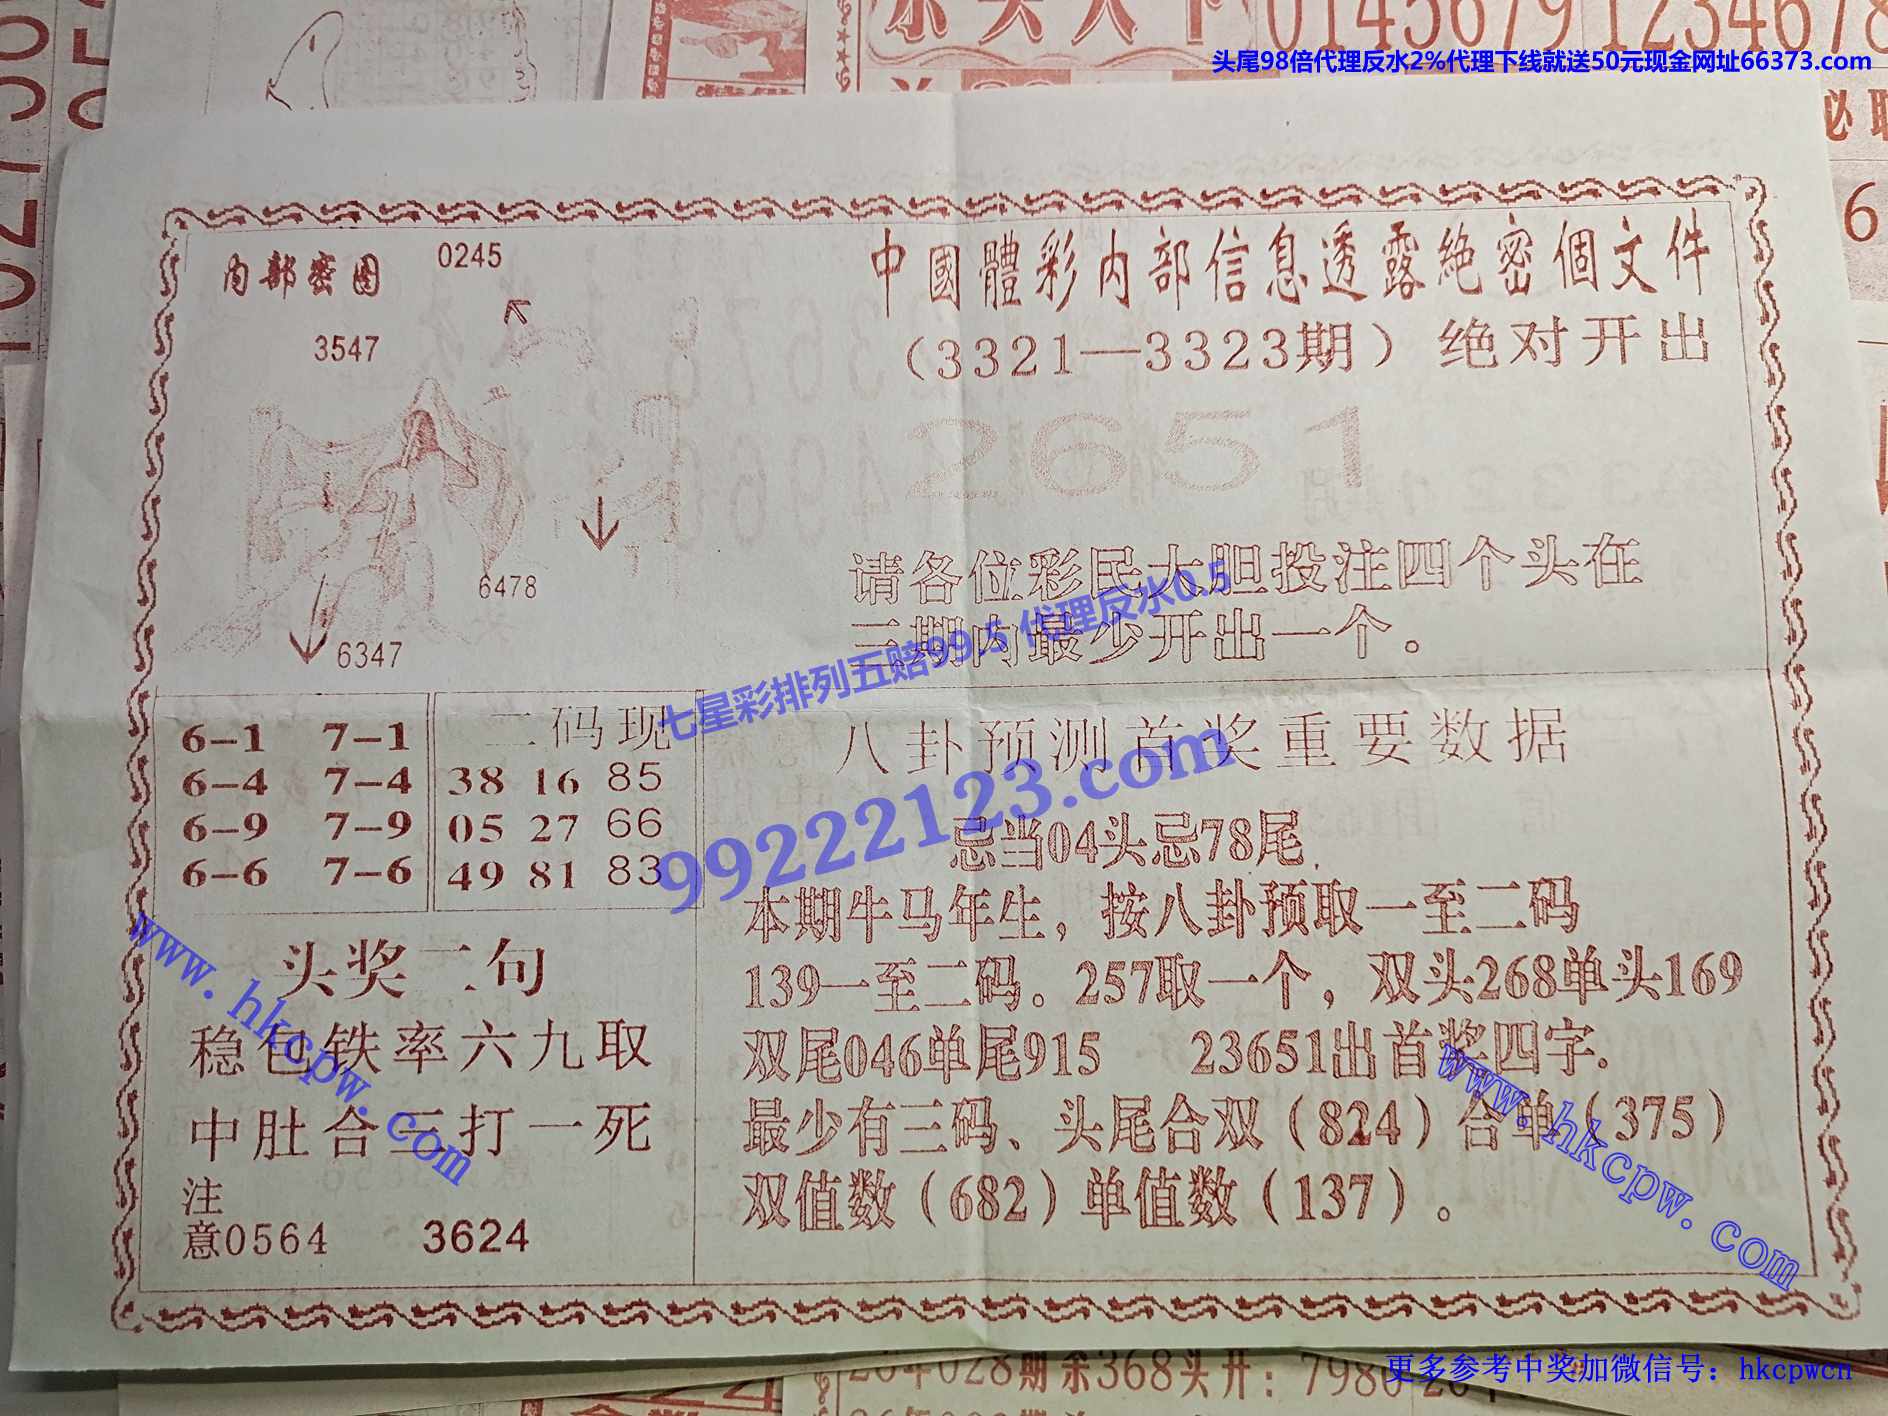 尔头天下
01456791234678
头尾98倍代理反水2%代理下线就送50元现金网址66373.com
必
6
内部密图
0245
3547
6478
6347
中國體彩内部信息透露絶密個文件
(3321—3323期) 绝对开出
2651
请各位彩民大胆投注四个头在
三期内最少开出一个.
七星彩排列五赔99.5 代理反水0.5
99222123.com
6-1 7-1
6-4 7-4
6-9 7-9
6-6 7-6
二码现
38 16 85
05 27 66
49 81 83
八卦预测首奖重要数据
忌当04头忌78尾.
本期牛马年生，按八卦预取一至二码
139一至二码. 257取一个，双头268单头169
双尾046单尾915 23651出首奖四字.
最少有三码、头尾合双(824) 合单(375)
双值数(682)单值数(137)。
头奖二句
稳包铁率六九取
中肚合三打一死
注
意0564 3624
www.hkcpw.com
www.hkcpw.com
26年028期余368头开: 7980
更多参考中奖加微信号：hkcpwcn